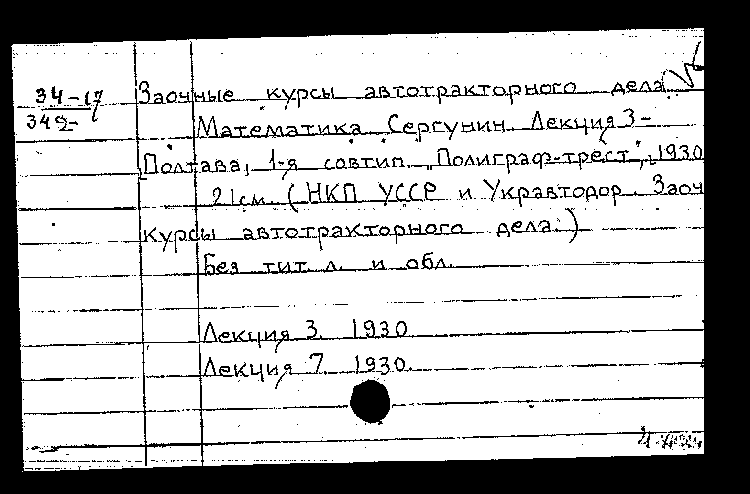 34-17 Заочные курсы автотракторного дела.
342- Математика. Сергунин. Лекция 3-
Полтава, 1-я совтип. „Полиграф-трест", 1930
21см. (НКП УССР и Укравтодор. Заоч
курсы автотракторного дела.)
Без тит. л. и обл.
Лекция 3. 1930
Лекция 7. 1930.